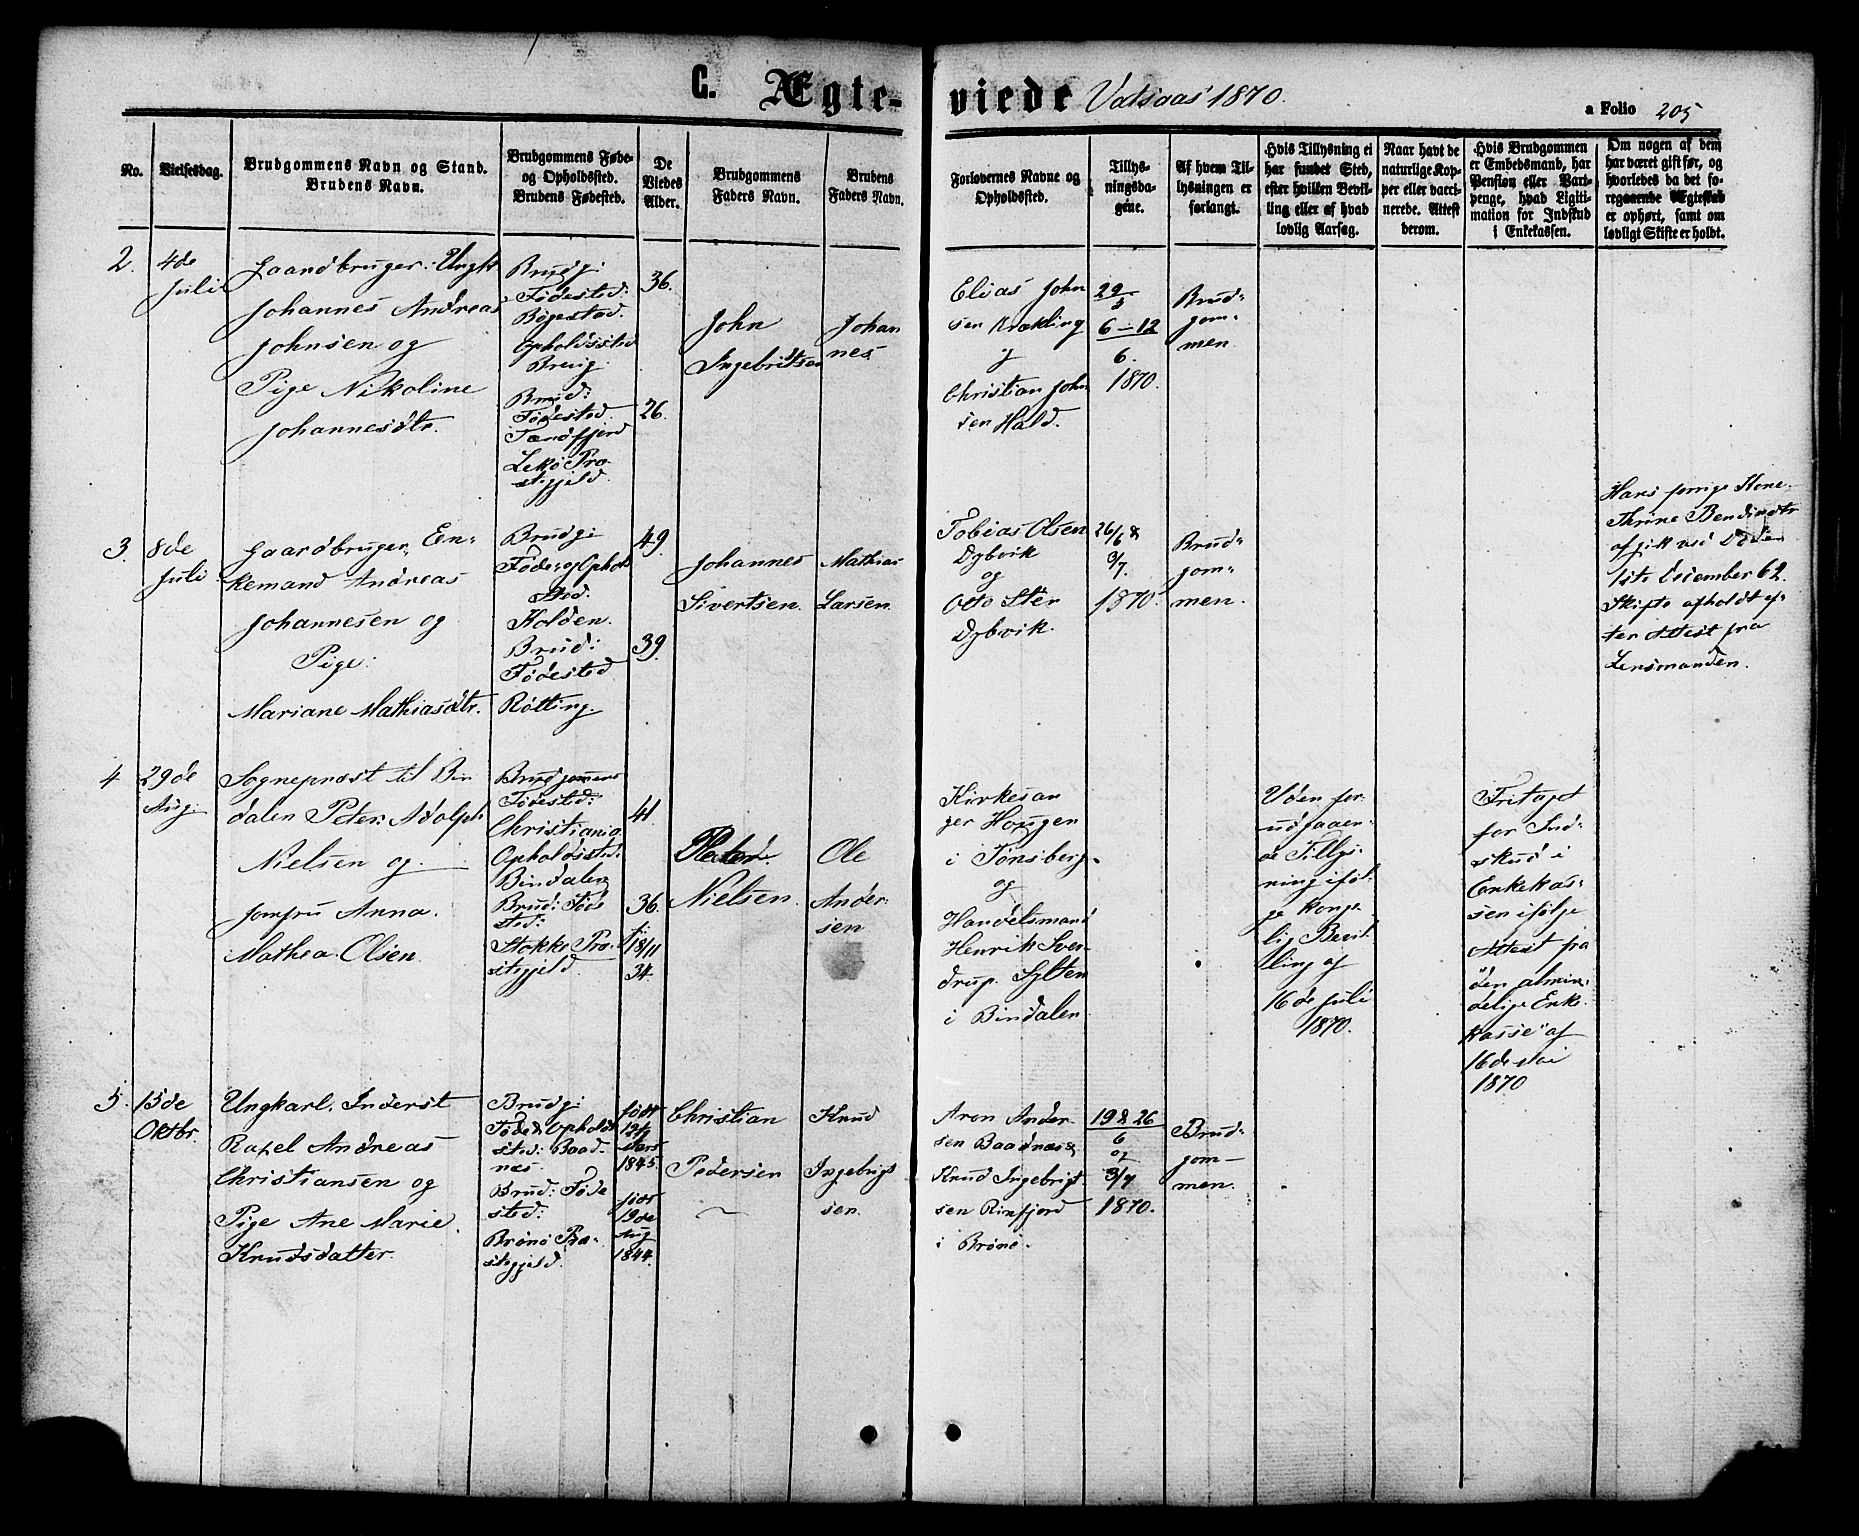 C. Ægte-viede Vatsaas 1870.
a Folio 205
No.
Vielsesdag.
Brudgommens Navn og Stand.
Brudens Navn.
Brudgommens Føde-
og Opholdssted.
Brudens Fødested.
De
Viedes
Alder.
Brudgommens
Faders Navn.
Brudens
Faders Navn.
Forlovernes Navne og
Opholdssted.
Tillys-
ningsda-
gene.
Af hvem Til-
lysningen er
forlangt.
Hvis Tillysning ei
har fundet Sted,
efter hvilken Bevil-
ling eller af hvad
lovlig Aarsag.
Naar havt de
naturlige Kop-
per eller vacci-
nerede. Attest
derom.
Hvis Brudgommen
er Embedsmand, har
Pension eller Vart-
penge, hvad Legiti-
mation for Indskud
i Enkekassen.
Om nogen af dem
har været gift før, og
hvorledes da det fo-
regaaende Ægteskab
er ophørt, samt om
lovligt Skifte er holdt.
2.
4de
Juli
Gaardbruger: Ungk
Johannes Andreas
Johnsen og
Pige Nikoline
Johannesdtr.
Brudg:
Fødested:
Bøgestad.
Opholdssted
Breng
Brud:
Fødested.
Terrdfjord
Lekø Præ-
stegjeld.
36.
26.
John
Ingebritsen
Johan
nes
Elias John
sen Kvækling
og
Christian John
sen Hald.
29
5
6-12
6.
1870.
Brud-
gom-
men.
3.
8de
Juli
Gaardbruger, En-
kemand Andreas
Johannesen og
Pige:
Mariane Mathiasdtr.
Brudg:
Føde: og Ophold
sted.
Holden.
Brud:
Fødested
Røtting.
49.
39.
Johannes
Sivertsen.
Mathias
Larsen.
Tobias Olsen
Dybvik
og
Otto Ster
Dybvik.
26/6 &
3/7.
1870.
Brud-
gom-
men.
Hans forrige Kone
Thrine Bendixdtr
afgik ved Døden
1ste December 62.
Skifte afholdt ef-
ter Attest fra
Lensmanden.
4
29de
Aug:
Sognepræst til Bin
dalen Peter Adolph
Nielsen og
Jomfru Anna
Mathea Olsen.
Brudgommens
Fødested:
Christiania.
Opholdssted:
Bindalen
Brud: Føde
sted:
Stokke Præ-
stegjeld.
41
36.
18/11
34.
Peter
Nielsen.
Ole
Ander
sen
Kirkesan
ger Hougen
i Tønsberg.
og
Handelsmand
Henrik Sver
drup. Sylten
i Bindalen.
Uden for-
udgaaen-
de Tillys-
ning iføl-
ge Konge
lig Bevil
ling af
16de Juli
1870.
Fritaget
for Ind-
skud i
Enkekas-
sen ifølge
Attest fra
"den almin-
delige Enke-
kasse" af
16de Mai
1870
5
15de
Oktbr.
Ungkarl. Inderst
Rasel Andreas
Christiansen og
Pige Ane Marie
Knudsdatter.
Brudg:
Føde & Opholds
sted: Baad-
næs.
Brud: Føde
sted:
Brønø Præ-
stegjeld.
født
12te
Mars
1845.
født
19de
Aug
1844.
Christian
Pedersen
Knud
Ingebrigt
sen.
Aron Ander
sen Baadnæs &
Knud Ingebrigt
sen Rinfjord
i Brønø.
19 & 26
6
og
3/7
1870.
Brud-
gom-
men.